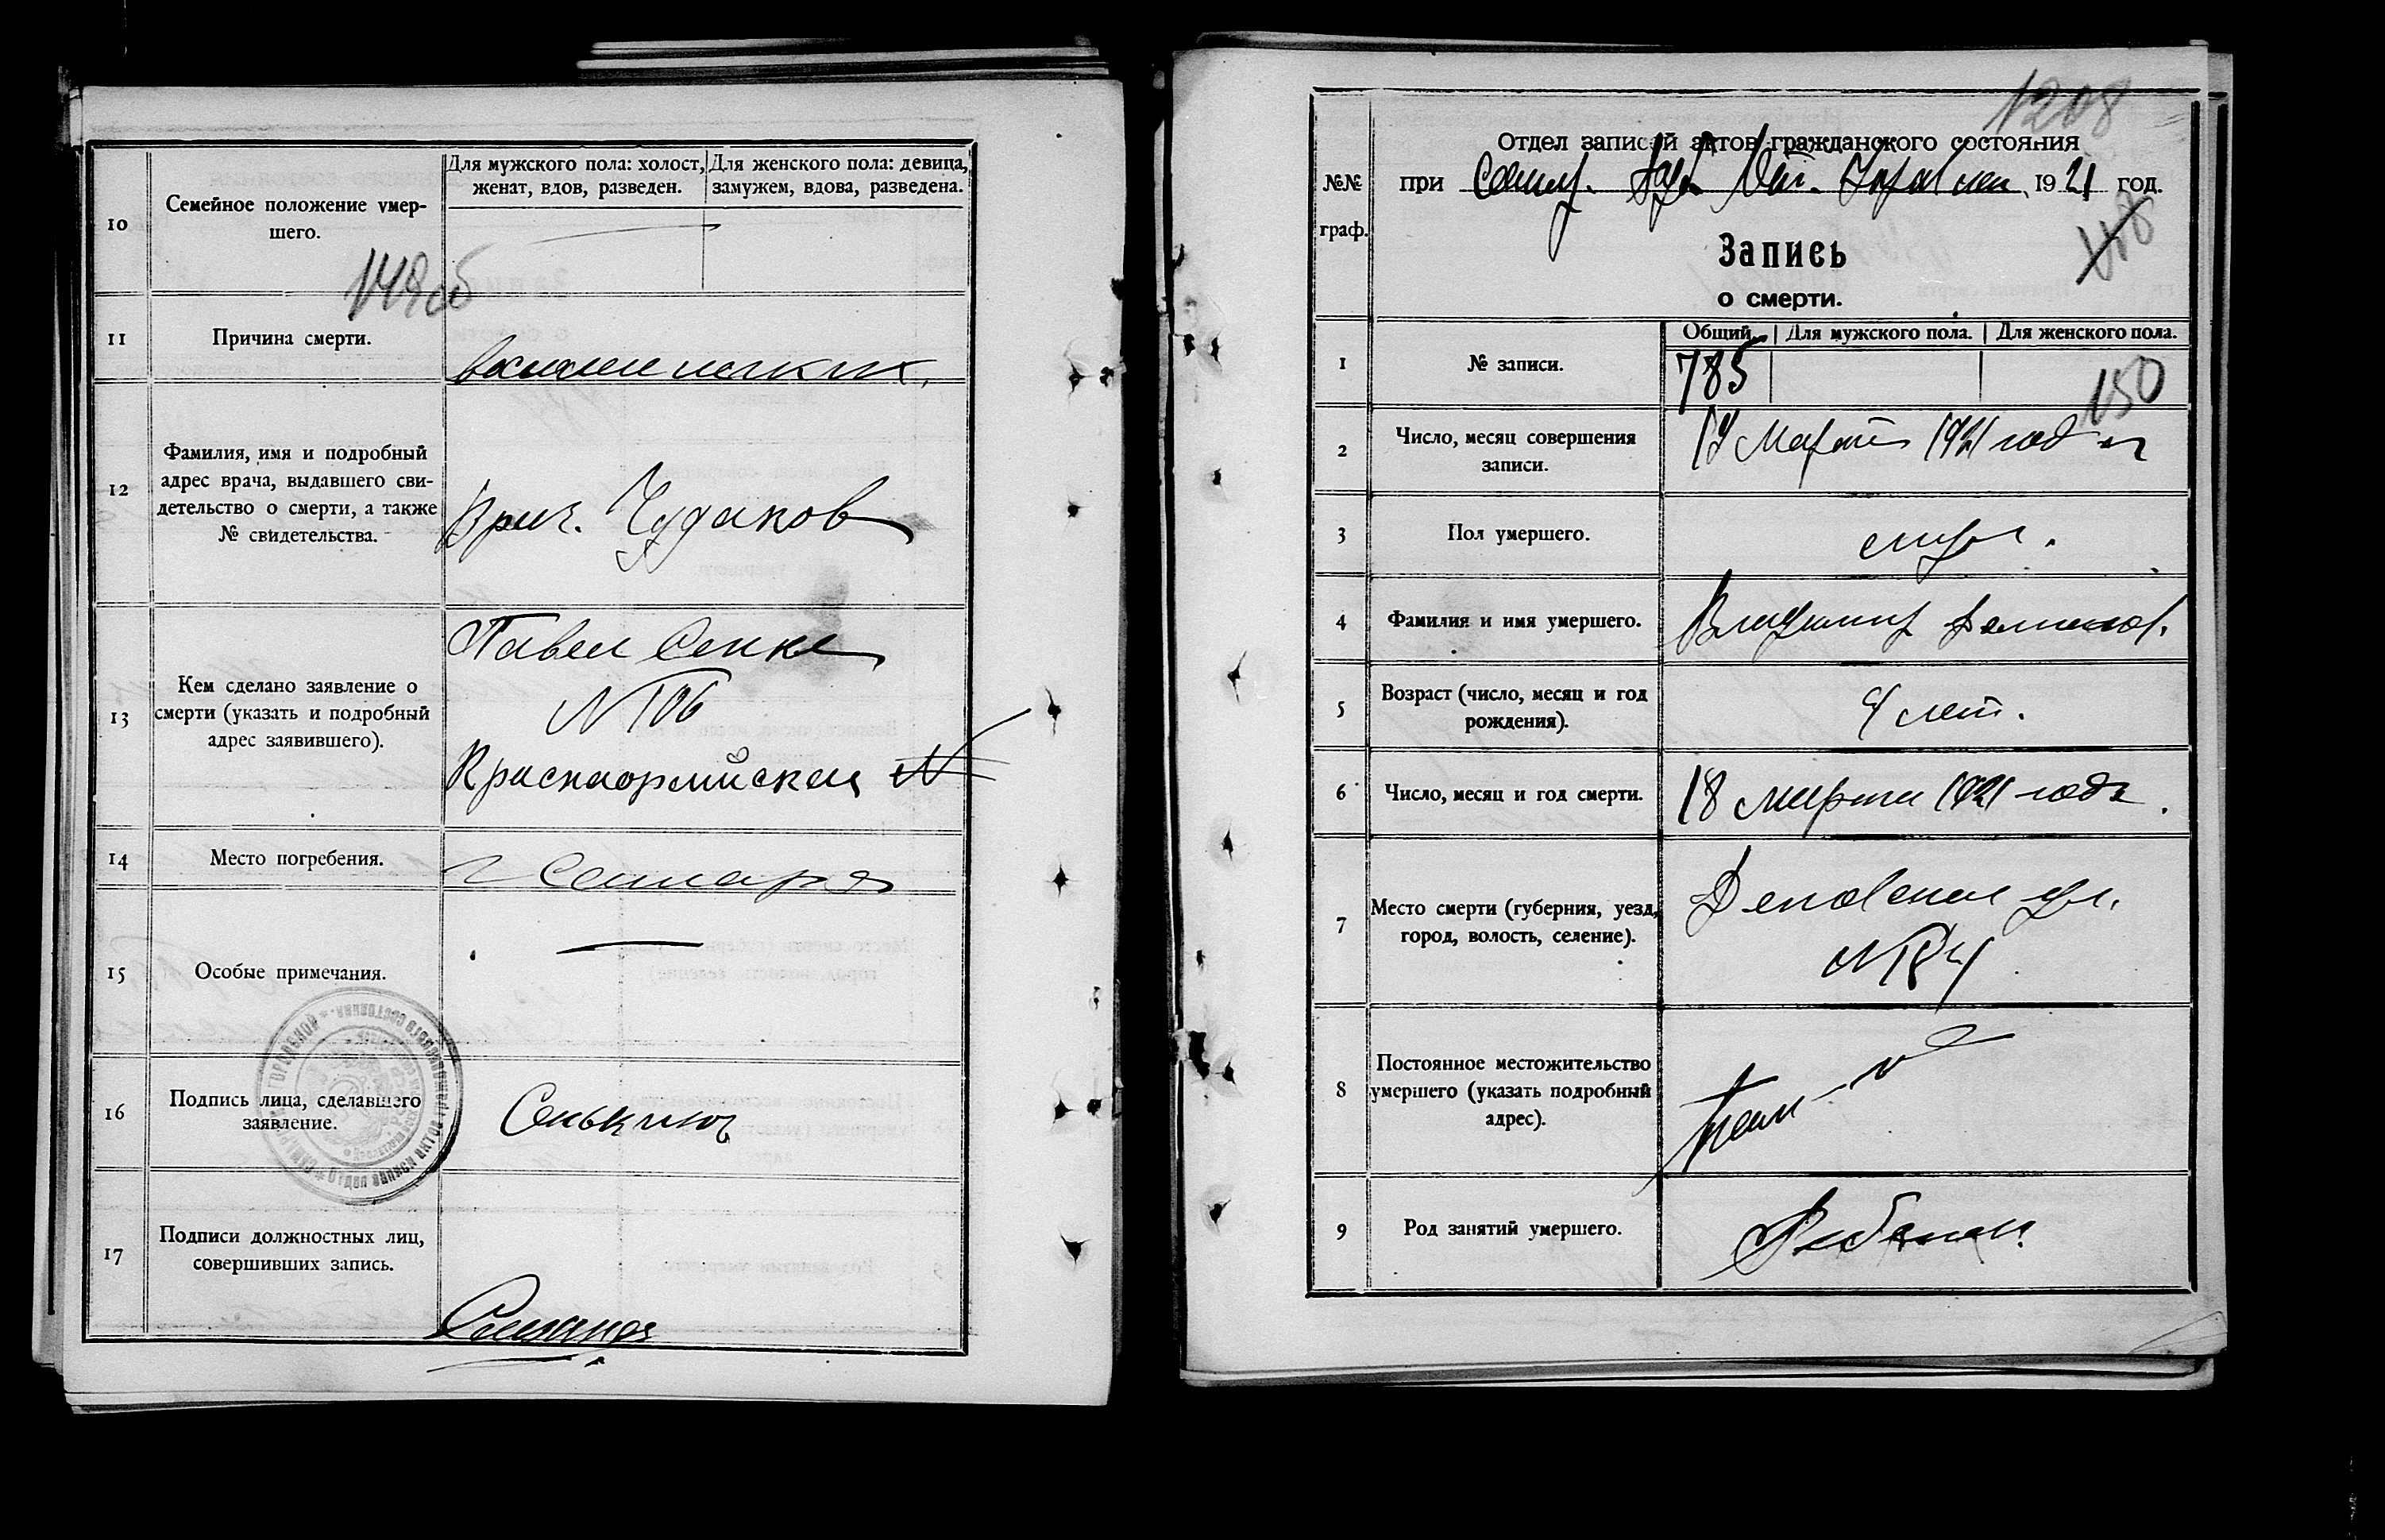 10
Семейное положение умер-
шего.
Для мужского пола: холост,
женат, вдов, разведен.
Для женского пола: девица,
замужем, вдова, разведена.
148об
11
Причина смерти.
12
Фамилия, имя и подробный
адрес врача, выдавшего сви-
детельство о смерти, а также
№ свидетельства.
Врач. Чудаков
13
Кем сделано заявление о
смерти (указать и подробный
адрес заявившего).
Павел
№ 106
Красноормийская №
14
Место погребения.
г Самара
15
Особые примечания.
16
Подпись лица, сделавшего
заявление.
17
Подписи должностных лиц,
совершивших запись.
1208
№№
граф.
Отдел записей актов гражданского состояния
при Самар. 1921 год.
148
Запись
о смерти.
1
№ записи.
Общий.
Для мужского пола.
Для женского пола.
785
150
2
Число, месяц совершения
записи.
19 Марта 1921 года
3
Пол умершего.
муж.
4
Фамилия и имя умершего.
Владимир
5
Возраст (число, месяц и год
рождения).
4 лет.
6
Число, месяц и год смерти.
18 марта 1921 года.
7
Место смерти (губерния, уезд,
город, волость, селение).
ул.
8
Постоянное местожительство
умершего (указать подробный
адрес).
9
Род занятий умершего.
Ребенок